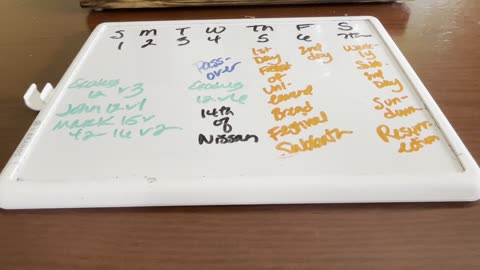 S M T W Th F S
1 2 3 4 5 6 7th
Exodus
12 v3
John 12 v1
Mark 15 v
42-16 v2
Pass-
over
Exodus
12 v6
14th
of
Nissan
1st
Day
Feast
of
Unl-
eavened
Bread
Festival
Sabbath
2nd
day
Week-
ly
Sab.
3rd
Day
Sun-
down
Resurr-
ection